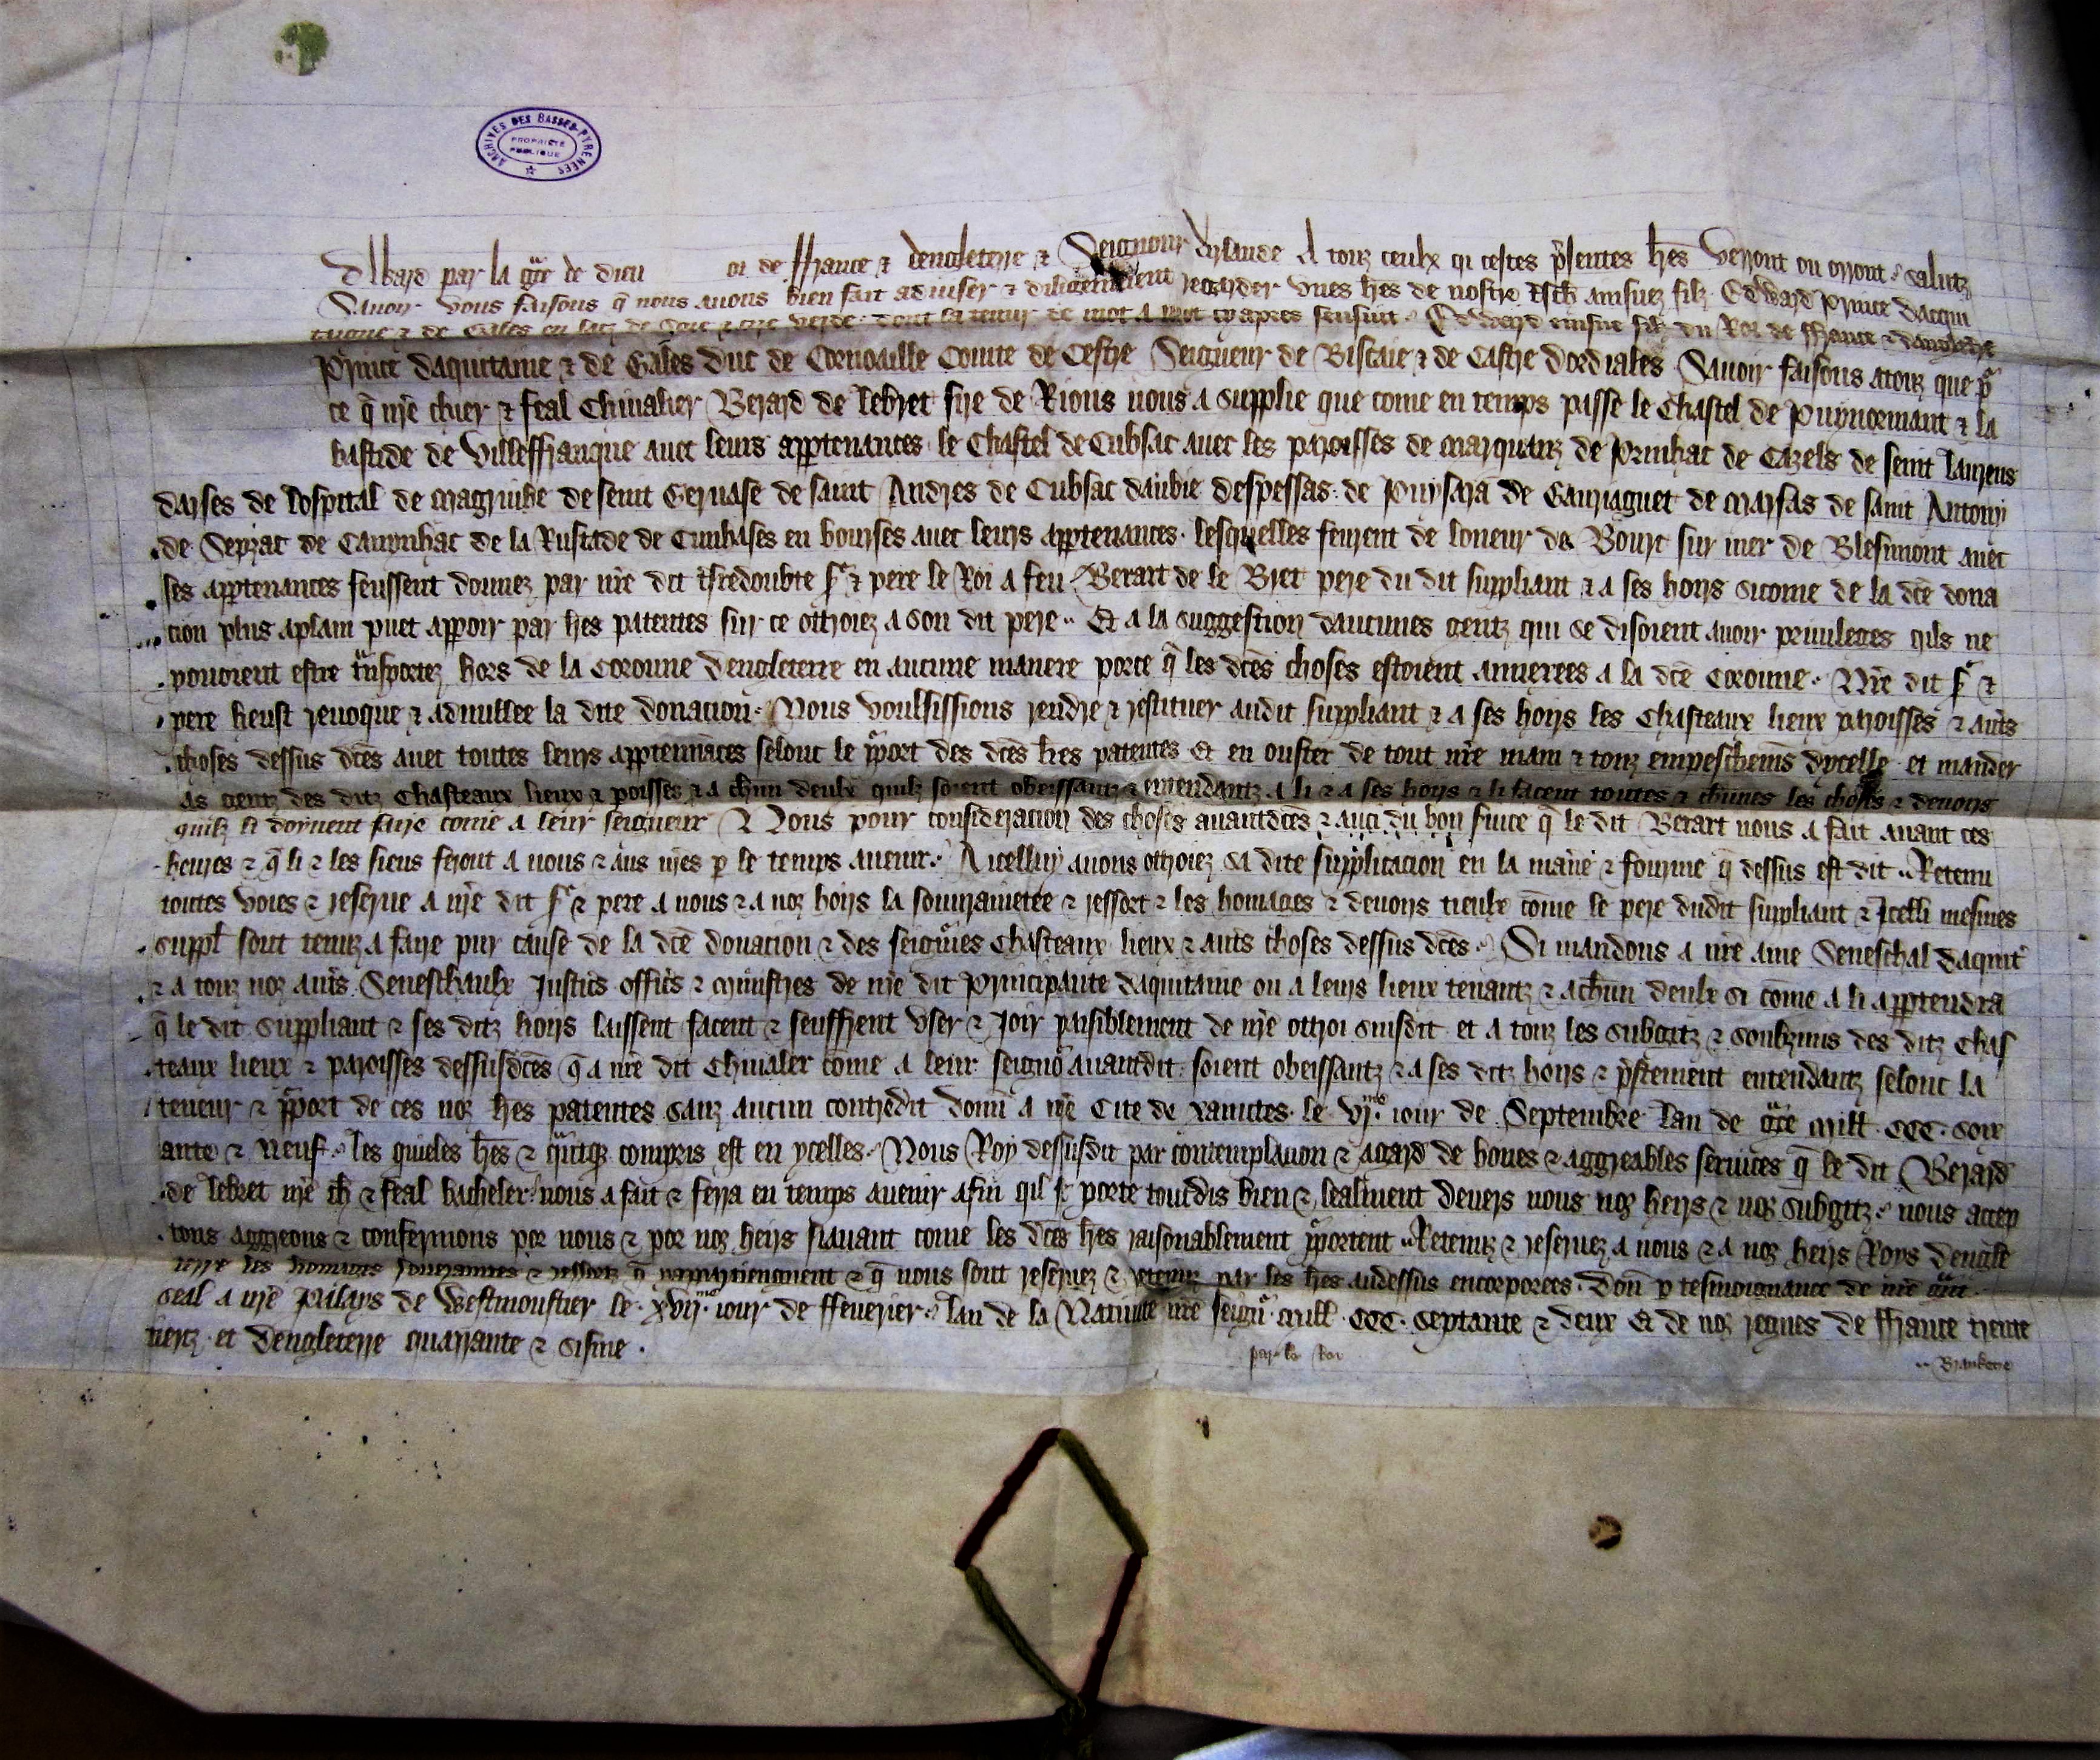 ARCHIVES DES BASSES-PYRENEES
PROPRIETE
PUBLIQUE
dWard par la gce de dieu oi de ffrance & dengleterre & Seignour dirlande A touz ceulx qi cestes psentes lres verront ou orront salutz
Savoir vous faisons q nous avons bien fait adviser & diligentement regarder unes lres de nostre tsch ainsnez filz Edward Prince dacqui
taigne & de Gales en laz de soie & cire verde dont la tenur de mot a mot cy apres sensuit Edward einsne filz du Roi de ffrance & dangleterre
Prince daquitaine & de Gales duc de Cornoaille Comte de Cestre Seigneur de Biscaie & de Castre dordiales Savoir faisons a touz que p
ce q nre chier & feal Chivalier Berard de Lebret sire de Rious nous a supplie que come en temps passe le Chastel de Puynormant & la
bastide de Villeffranque avec leurs apptenances le Chastel de Cubsac avec les paroisses de Marquais de Prinhac de Cazels de seint Laurens
darses de lospital de Magrinhe de seint Gervase de saint Andres de Cubsac daubie despessas de Puysara de Gauriaguet de Marsas de saint Antoni
de Sepzac de Cauynhac de la Rustade de Cunhases en bourses avec leurs apptenances lesquelles feurent de loneur de Bourc sur mer de Blesmont avec
ses apptenances feussent donnez par nre dit tsredoubte sr & pere le Roi a feu Berart de le Bret pere du dit suppliant & a ses hoirs sicome de la dce dona
cion plus aplain puet apparoir par lres patentes sur ce ottroiez a son dit pere Et a la suggestion daucunes gentz qui se disoient avoir privileges qils ne
povoient estre tnsportez hors de la Coronne dengleterre en aucune manere porce q les dces choses estoient annexees a la dce Coronne Nre dit sr &
pere heust revoque & adnullee la dite donacion Nous voulsissions rendre & restituer audit suppliant & a ses hoirs les Chasteaux lieux paroisses & auts
choses dessus dces avec toutes leurs apptennces selonc le pport des dces lres patentes Et en ouster de tout nre main & touz empeschems dycelle et mander
as gentz des ditz Chasteaux lieux & poisses & a chun deulx quilz soient obeissantz & entendantz a li & a ses hoirs & li facent toutes & chunes les choses & devoirs
quilz li doyvent faire come a leur seigneur Nous pour consideracion des choses avantdces & auci du bon svice q le dit Berart nous a fait avant ces
heures & q li & les siens feront a nous & aus nres p le temps avenir Aicelluy avons ottroiez sa dite supplicacion en la mane & fourme q dessus est dit Retenu
toutes voies & reserve a nre dit sr & pere a nous & a noz hoirs la souvrainetee & ressort & les homages & devoirs tieulx come le pere dudit suppliant & Icelli mesmes
suppl sont tenuz a faire pur cause de la dce donacion & des seignes Chasteaux lieux & auts choses dessus dces Si mandons a nre ame Seneschal daquit
& a touz noz auts Seneschaulx Justics offics & ministres de nre dit Principaute daquitaine ou a leurs lieux tenantz & achun deulx si come a li apptendra
q le dit suppliant & ses ditz hoirs laissent facent & seuffrent user & Joir paisiblement de nre ottroi susdit et a touz les subgitz & soubzmis des ditz Chas
teaux lieux & paroisses dessusdces q a nre dit Chivaler come a leur seigno avantdit soient obeissantz & a ses ditz hoirs & pstement entendantz selonc la
teneur & pport de ces noz lres patentes sanz aucun contredit donn a nre Cite de Xanctes le vjme iour de Septembre lan de gce mill CCC soix
ante & neuf les quieles lres & qntqe compris est en ycelles Nous Roy dessusdit par contemplacion & agard de bones & aggreables services q le dit Berard
de Lebret nre ch & feal bacheler nous a fait & ferra en temps avenir afin qil se porte toutdis bien & lealment devers nous noz heirs & noz subgitz nous accep
tons aggreons & confermons por nous & por noz heirs siavant come les dces lres raisonablement pportent Retenuz & reservez a nous & a noz heirs Roys dengle
terre les homages soverainetes & ressortz q nappartiengnent & q nous sont reservez & retenuz par les lres andessus encorporees Don p tesmoignance de nre gnt
seal a nre Palays de Westmoustier le xvijme iour de ffeverier lan de la Nativite nre seignr mill CCC septante & deux Et de noz regnes de ffrance trente
tiertz et Dengleterre quarrante & sisme
par le Roi
Brankete